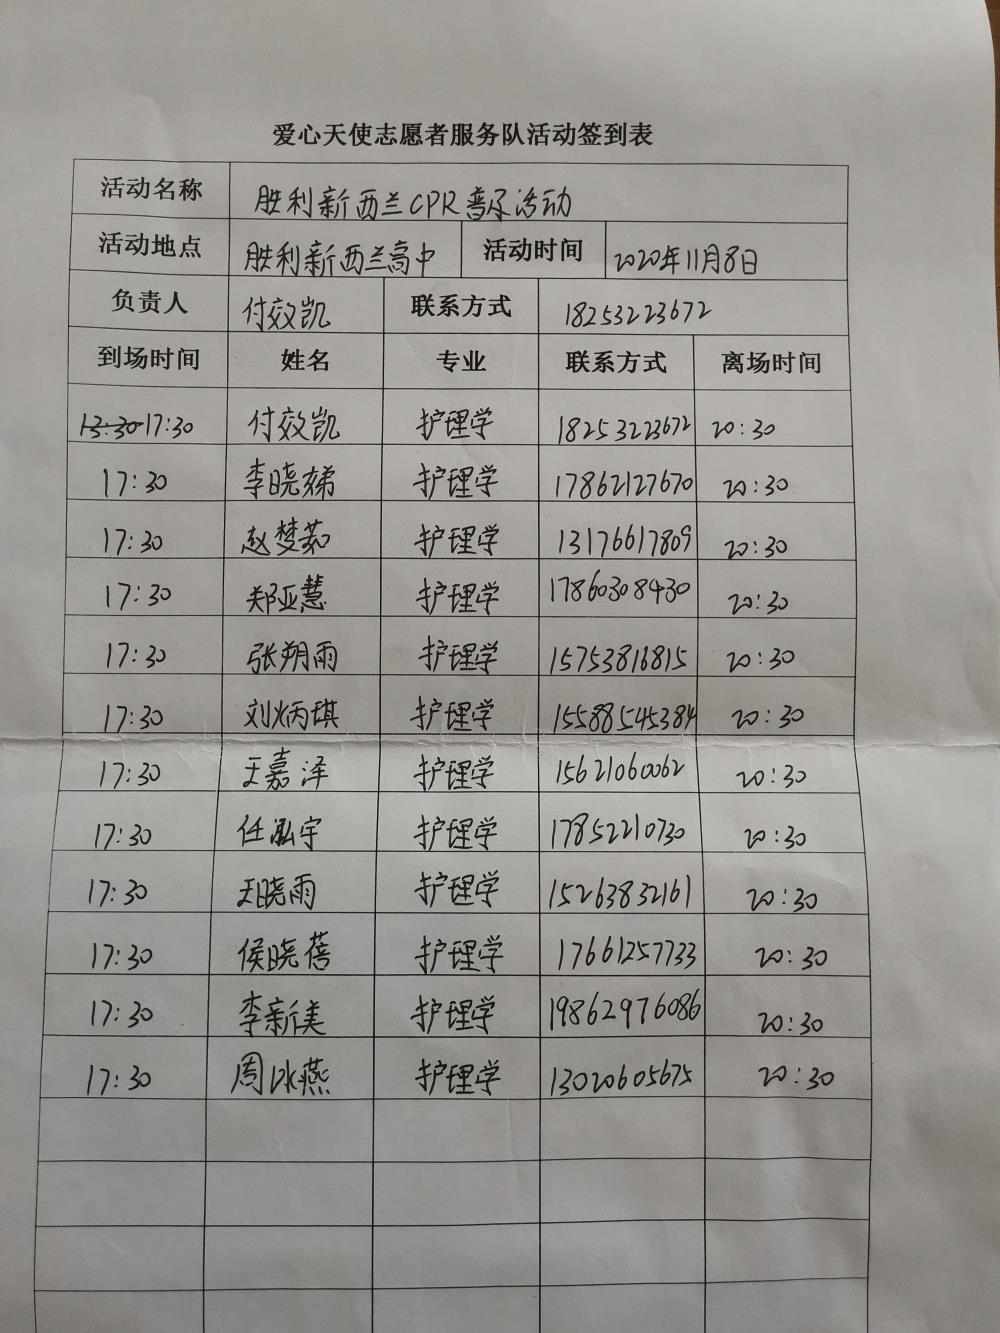 爱心天使志愿者服务队活动签到表
活动名称 胜利新西兰CPR普及活动
活动地点 胜利新西兰高中 活动时间 2020年11月8日
负责人 付效凯 联系方式 18253223672
到场时间 姓名 专业 联系方式 离场时间
13:30 17:30 付效凯 护理学 18253223672 20:30
17:30 李晓娣 护理学 17862127670 20:30
17:30 赵梦茹 护理学 13176617809 20:30
17:30 郑亚慧 护理学 17860308430 20:30
17:30 张朔雨 护理学 15753816815 20:30
17:30 刘炳琪 护理学 15588545384 20:30
17:30 王嘉泽 护理学 15621060062 20:30
17:30 任泓宇 护理学 17852210730 20:30
17:30 王晓雨 护理学 15263832161 20:30
17:30 侯晓蓓 护理学 17661257733 20:30
17:30 李新美 护理学 19862976086 20:30
17:30 周冰燕 护理学 13020605675 20:30